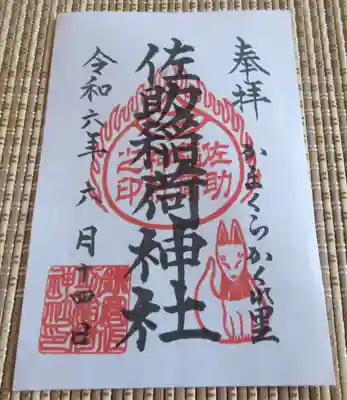 奉拝
かまくらかくれ里
佐助稲荷神社
令和六年六月十四日
佐助
之印